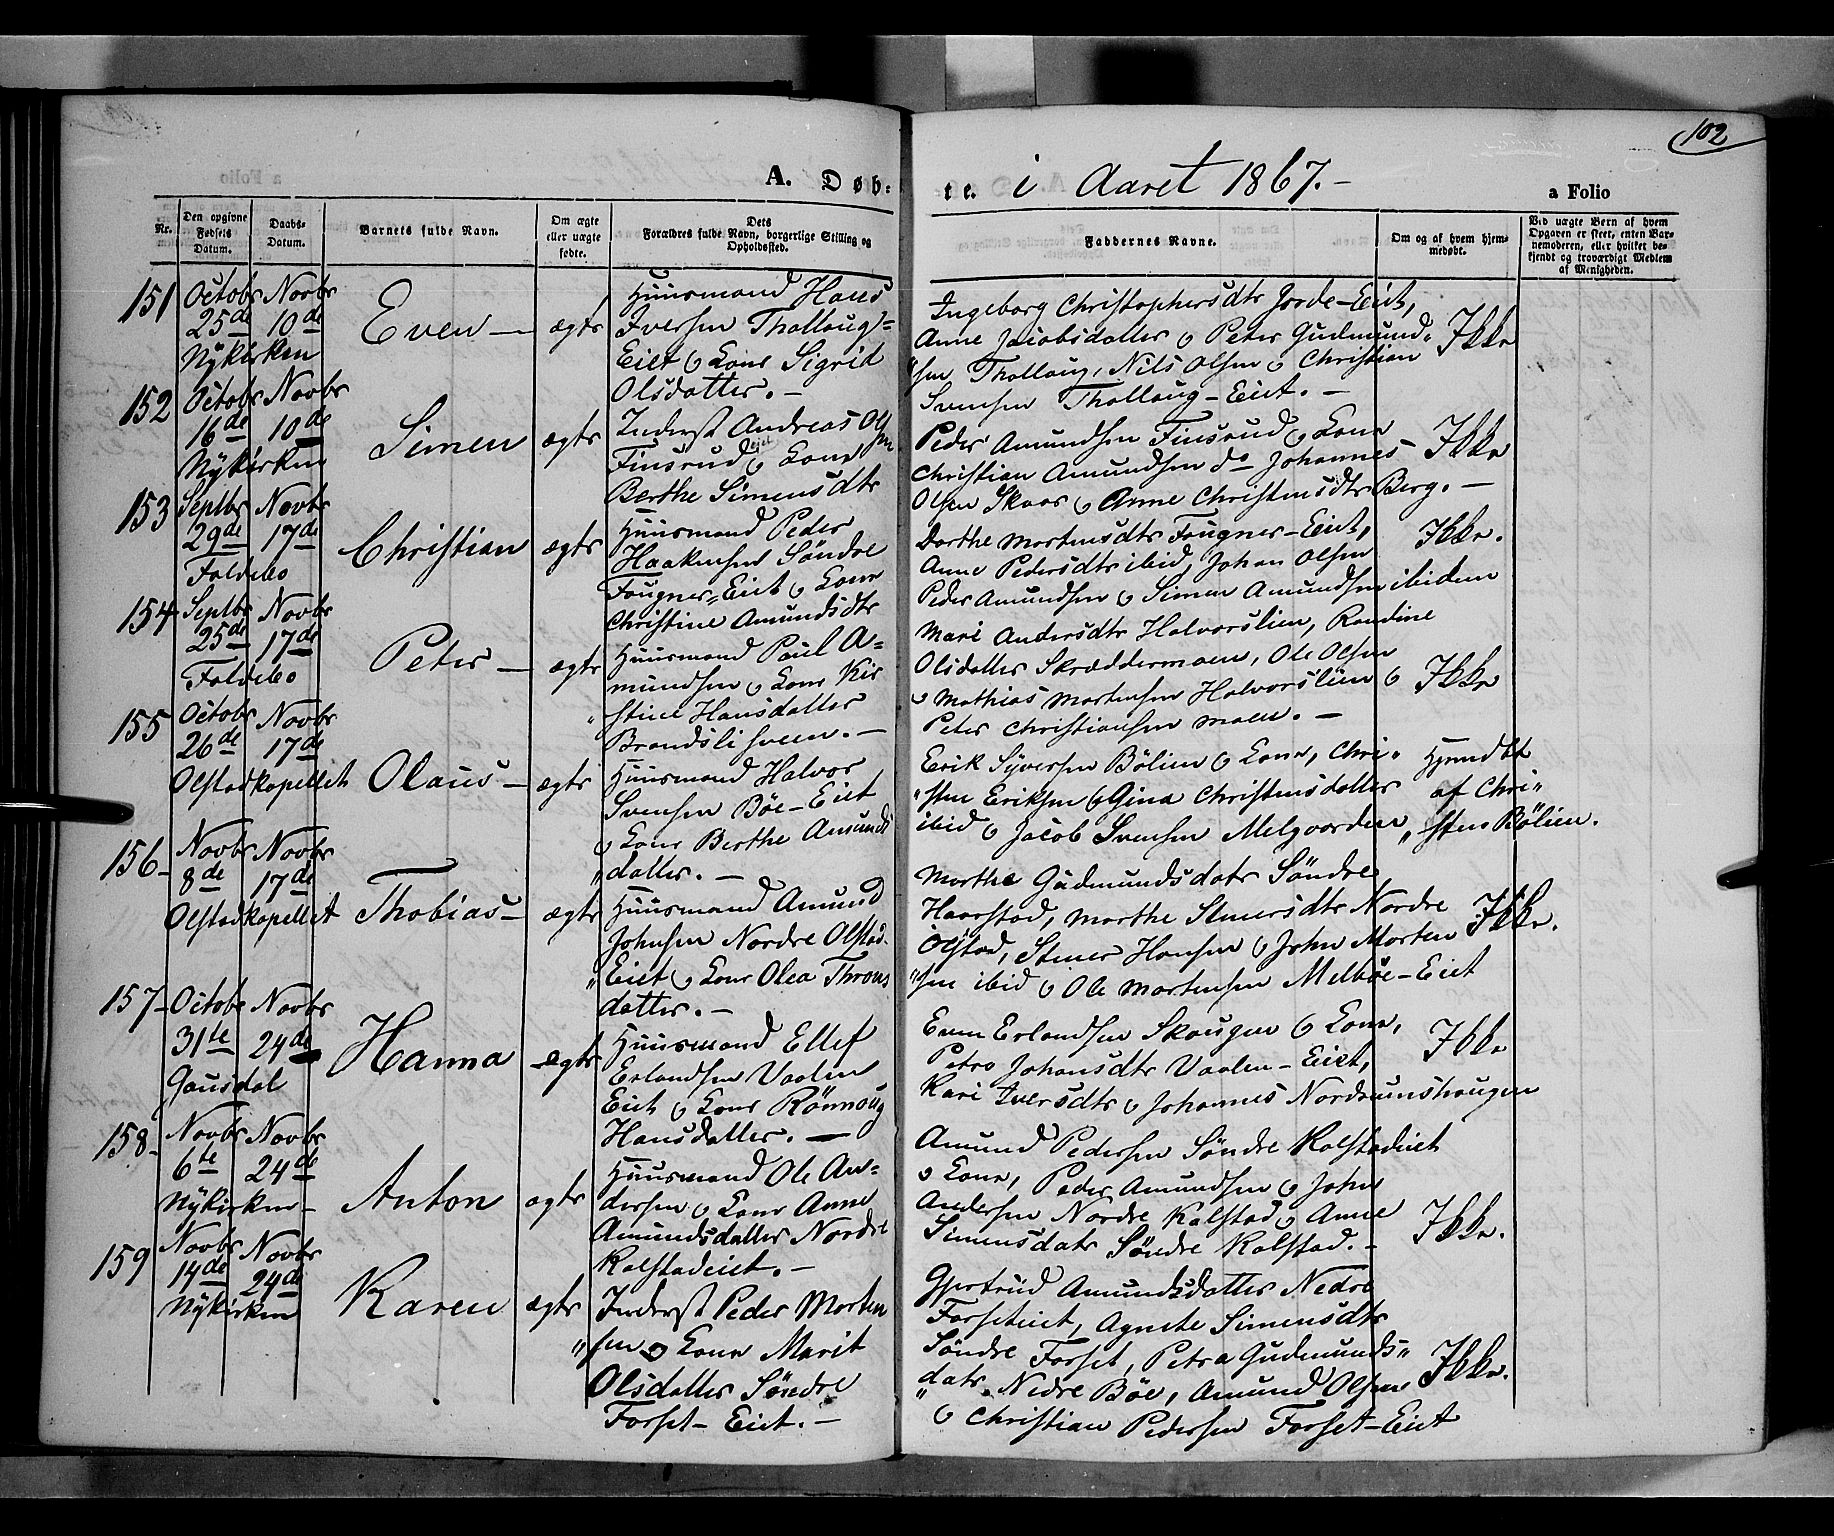 102
A. Døb-
te. i Aaret 1867.-
a Folio
Nr.
Den opgivne Fødsels Datum.
Daabs-Datum.
Barnets fulde Navn.
Om ægte eller uægte fødte.
Dets Forældres fulde Navn, borgerlige Stilling og Opholdssted.
Faddernes Navne.
Om og af hvem hjemmedøbt.
Ved uægte Børn af hvem Opgaven er skeet, enten Barnemoderen, eller hvilket bekjendt og troværdigt Medlem af Menigheden.
151 Octobr 25de Novbr 10de Nykirken
Even – ægte
Huusmand Hans
Iversen Thallaug-
Eiet og Kone Sigrid
Olsdatter. –
Ingeborg Christophersdtr Jorde-Eiet,
Anne Jacobsdatter og Peter Gudmund-
sen Thallaug, Nils Olsen og Christian
Svensen Thallaug-Eiet. –
Ikke
152 Octobr 16de Novbr 10de Nykirken
Simen ægte
Inderst Andreas Olsen
Finsrud eiet og Kone
Berthe Simensdtr
Peder Amundsen Finsrud og Kone
Christian Amundsen do Johannes
Olsen Skaar og Anne Christensdtr Berg. –
Ikke
153 Septbr 29de Novbr 17de Foldebo
Christian ægte
Huusmand Peder
Haakensen Söndre
Fougner-Eiet og Kone
Christine Amundsdtr
Dorthe Mortensdtr Fougner-Eiet,
Anne Pedersdtr ibid, Johan Olsen
Peder Amundsen og Simen Amundsen ibidem
Ikke.
154 Septbr 25de Novbr 17de Foldebo
Peter – ægte
Huusmand Poul A-
mundsen og Kone Kir
stine Hansdatter
Brandslisveen. –
Mari Andersdtr Halvorslien, Randine
Olsdatter Skræddermoen, Ole Olsen
og Mathias Mortensen Halvorslien og
Peter Christiansen Moen. –
Ikke
155 Octobr 26de Novbr 17de Olstadkapellet
Olaus – ægte
Huusmand Halvor
Svensen Böe-Eiet
og Kone Berthe Amunds
datter. –
Erik Syversen Bölien og Kone, Chri-
sten Eriksen og Gina Christensdatter
ibid og Jacob Svensen Melgaarden
Hjemdbt
af Chri-
sten Bölien.
156 Novbr 8de Novbr 17de Olstadkapellet
Thobias – ægte
Huusmand Amund
Johnsen Nordre Olstad-
Eiet og Kone Olea Throns
datter. –
Marthe Gudmundsdatr Söndre
Haarstad, Marthe Stenersdtr Nordre
Olstad, Stener Hansen og John Morten
sen ibid og Ole Mortensen Melböe-Eiet
Ikke.
157 Octobr 31te Novbr 24de Gausdal
Hanna ægte
Huusmand Ellef
Erlandsen Vaalen
Eiet og Kone Rönnaug
Hansdatter. –
Even Erlandsen Skougen og Kone,
Petra Johansdtr Vaalen-Eiet,
Kari Iversdtr og Johannes Nordrumshaugen
Ikke
158 Novbr 6te Novbr 24de Nykirken –
Anton ægte
Huusmand Ole An-
dersen og Kone Anne
Amundsdatter Nordre
Kalstadeiet. –
Amund Pedersen Söndre Kolstadeiet
og Kone, Peder Amundsen og John
Andersen Nordre Kalstad og Anne
Simensdatr Söndre Kolstad. –
Ikke.
159 Novbr 14de Novbr 24de Nykirken
Karen ægte
Inderst Peder Morten
sen og Kone Marit
Olsdatter Söndre
Forset-Eiet. –
Gjertrud Amundsdatter Nedre
Forseteiet, Agnete Simensdtr
Söndre Forset, Petra Gudmunds-
datr. Nedre Böe, Amund Olsen
og Christian Pedersen Forset-Eiet
Ikke.